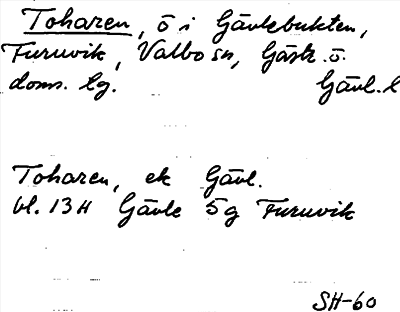 Toharen, ö i Gävlebukten,
Furuvik, Valbo sn, Gästr. ö.
doms. lg. Gävl. l
Toharen, ek Gävl.
bl. 13H Gävle 5g Furuvik
SH-60